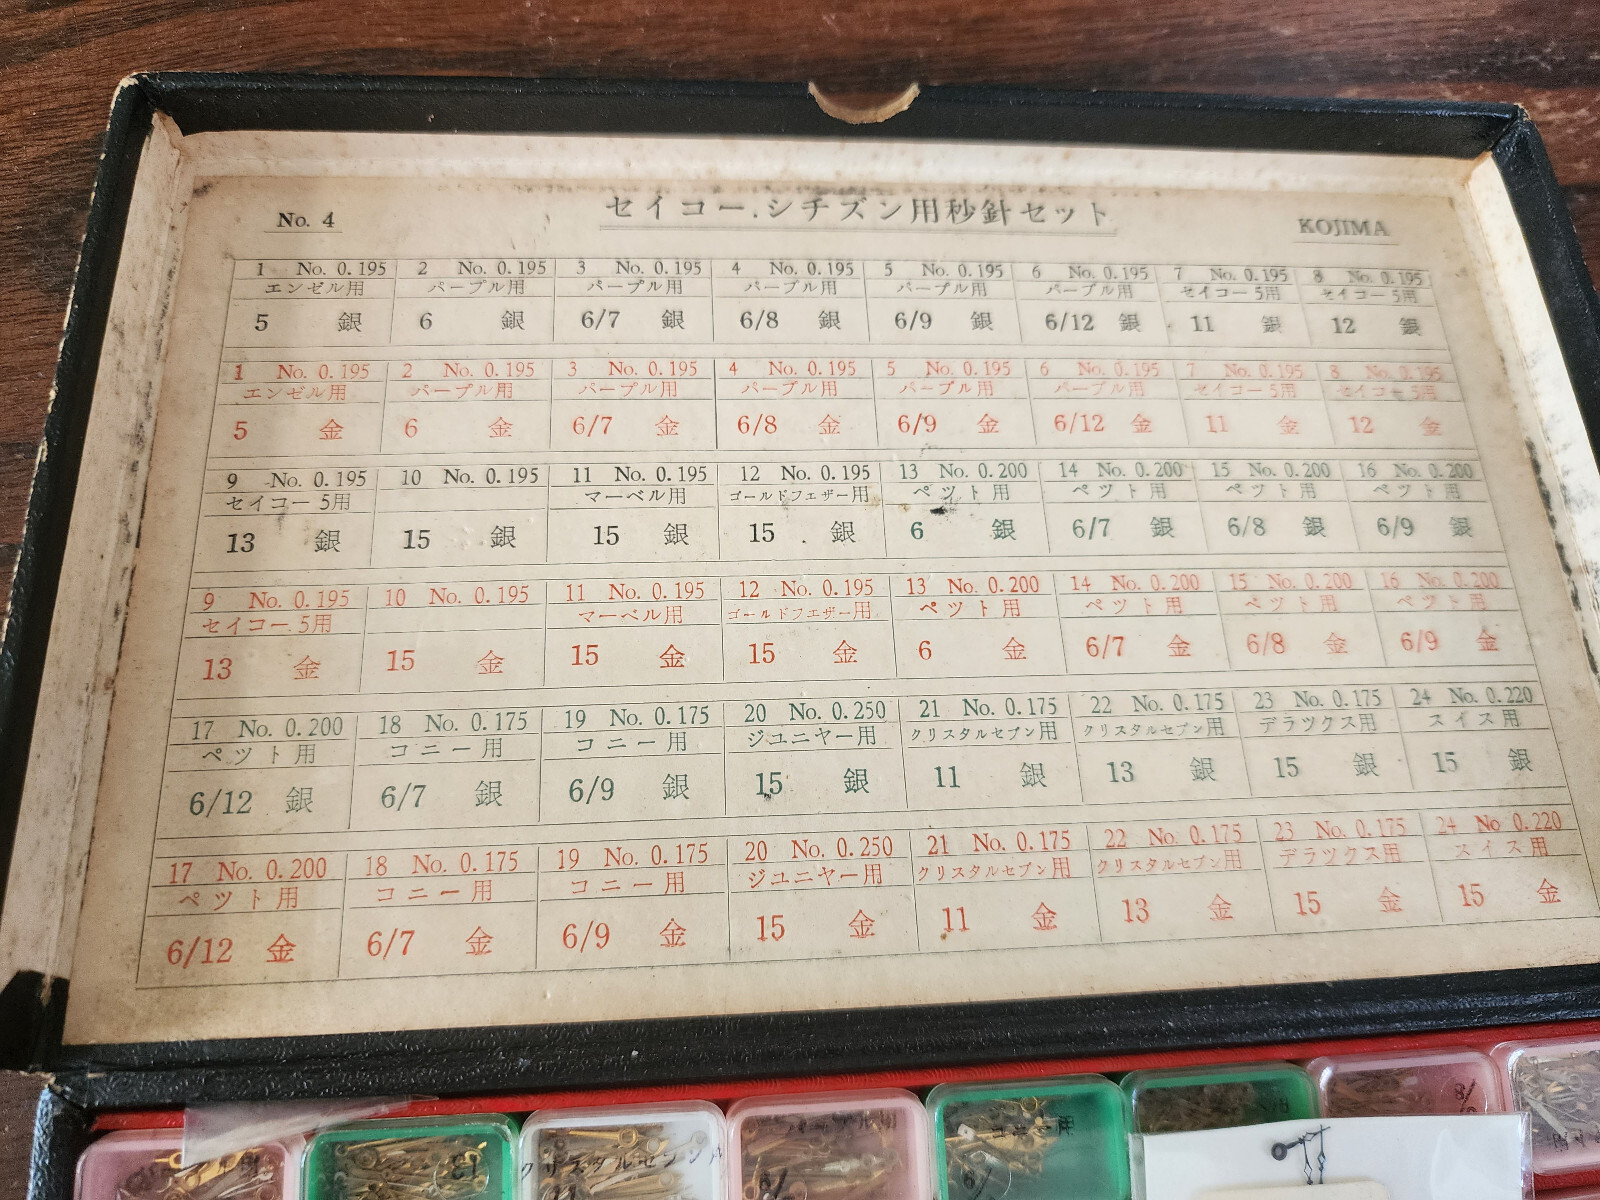 No. 4 セイコー.シチズン用秒針セット KOJIMA
1 No. 0.195 2 No. 0.195 3 No. 0.195 4 No. 0.195 5 No. 0.195 6 No. 0.195 7 No. 0.195 8 No. 0.195
エンゼル用 パープル用 パープル用 パープル用 パープル用 パープル用 セイコー 5用 セイコー 5用
5 銀 6 銀 6/7 銀 6/8 銀 6/9 銀 6/12 銀 11 銀 12 銀
1 No. 0.195 2 No. 0.195 3 No. 0.195 4 No. 0.195 5 No. 0.195 6 No. 0.195 7 No. 0.195 8 No. 0.195
エンゼル用 パープル用 パープル用 パープル用 パープル用 パープル用 セイコー 5用 セイコー 5用
5 金 6 金 6/7 金 6/8 金 6/9 金 6/12 金 11 金 12 金
9 No. 0.195 10 No. 0.195 11 No. 0.195 12 No. 0.195 13 No. 0.200 14 No. 0.200 15 No. 0.200 16 No. 0.200
セイコー 5用 マーベル用 ゴールドフエザー用 ペツト用 ペツト用 ペツト用 ペツト用
13 銀 15 銀 15 銀 15 銀 6 銀 6/7 銀 6/8 銀 6/9 銀
9 No. 0.195 10 No. 0.195 11 No. 0.195 12 No. 0.195 13 No. 0.200 14 No. 0.200 15 No. 0.200 16 No. 0.200
セイコー 5用 マーベル用 ゴールドフエザー用 ペツト用 ペツト用 ペツト用 ペツト用
13 金 15 金 15 金 15 金 6 金 6/7 金 6/8 金 6/9 金
17 No. 0.200 18 No. 0.175 19 No. 0.175 20 No. 0.250 21 No. 0.175 22 No. 0.175 23 No. 0.175 24 No. 0.220
ペツト用 コニー用 コニー用 ジユニヤー用 クリスタルセブン用 クリスタルセブン用 デラツクス用 スイス用
6/12 銀 6/7 銀 6/9 銀 15 銀 11 銀 13 銀 15 銀 15 銀
17 No. 0.200 18 No. 0.175 19 No. 0.175 20 No. 0.250 21 No. 0.175 22 No. 0.175 23 No. 0.175 24 No 0.220
ペツト用 コニー用 コニー用 ジユニヤー用 クリスタルセブン用 クリスタルセブン用 デラツクス用 スイス用
6/12 金 6/7 金 6/9 金 15 金 11 金 13 金 15 金 15 金
13